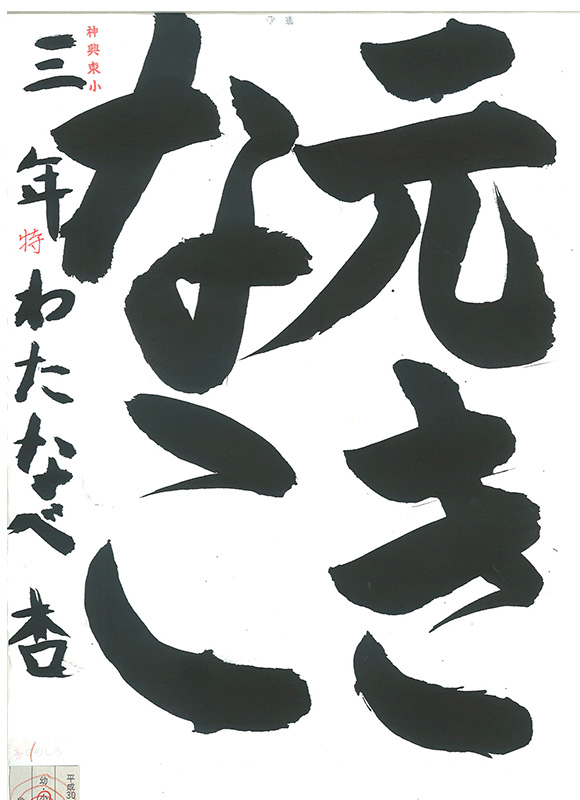 元き
なこ
三年わたなべ杏
神興東小
特
平成30
幼・小